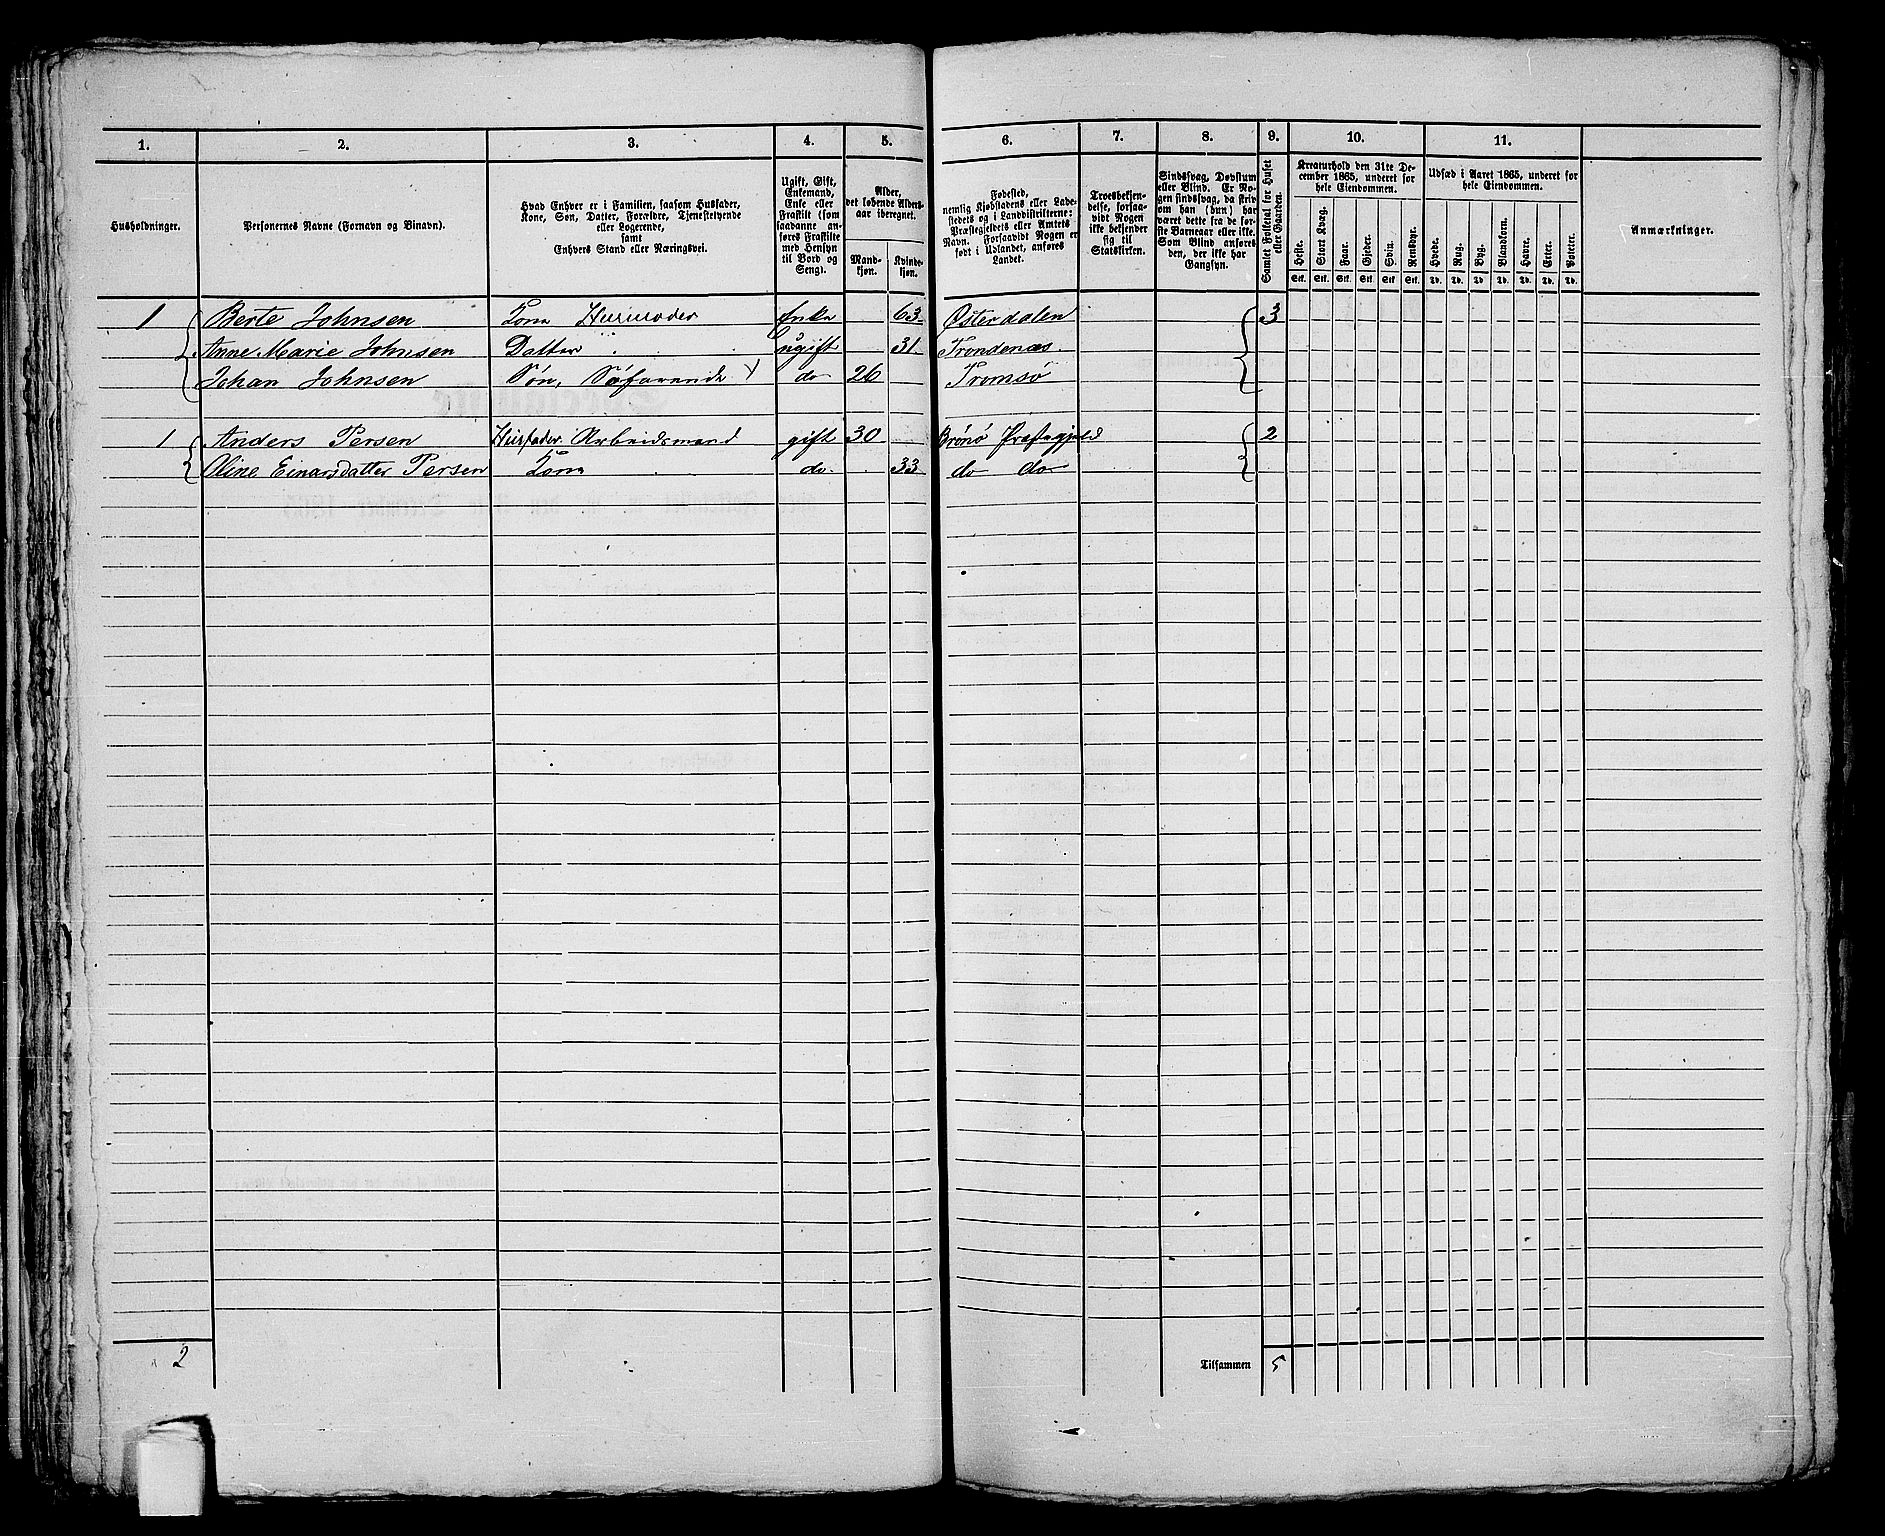 1. 2. 3. 4. 5. 6. 7. 8. 9. 10. 11.
Husholdninger.
Personernes Navne (Fornavn og Binavn).
Hvad Enhver er i Familien, saasom Husfader,
Kone, Søn, Datter, Forældre, Tjenestetyende
eller Logerende,
samt
Enhvers Stand eller Næringsvei.
Ugift, Gift,
Enkemand,
Enke eller
Fraskilt (som
saadanne an-
føres Fraskilte
med Hensyn
til Bord og
Seng).
Alder,
det løbende Alders-
aar iberegnet.
Mand-
kjøn.
Kvinde-
kjøn.
Fødested,
nemlig Kjøbstadens eller Lade-
stedets og i Landdistrikterne:
Præstegjeldets eller Amtets
Navn. Forsaavidt Nogen er
født i Udlandet, anføres
Landet.
Troesbekjen-
delse, forsaa-
vidt Nogen
ikke bekjender
sig til
Statskirken.
Sindssvag, Døvstum
eller Blind. Er No-
gen sindssvag, da skriv
om han (hun) har
været dette fra de før-
ste Barneaar eller ikke.
Som Blind anføres
den, der ikke har
Gangsyn.
Samlet Folketal for Huset
eller Gaarden.
Kreaturhold den 31te De-
cember 1865, underet for
hele Eiendommen.
Heste. Stort Kvæg. Faar. Gjeder. Svin. Rensdyr.
Stk. Stk. Stk. Stk. Stk. Stk.
Udsæd i Aaret 1865, underet for
hele Eiendommen.
Hvede. Rug. Byg. Blandkorn. Havre. Erter. Poteter.
Td. Td. Td. Td. Td. Td. Td.
Anmærkninger.
1 Berte Johnsen Kone Husmoder Enke 63 Østerdalen 3
Anne Marie Johnsen Datter ugift 31. Trondenæs.
Johan Johnsen Søn, Søfarende do 26 Tromsø
1 Anders Persen Husfader. Arbeidsmand gift 30 Brønø Præstegjeld 2
Oline Einarsdatter Persen Kone do 33 do do
2 Tilsammen 5